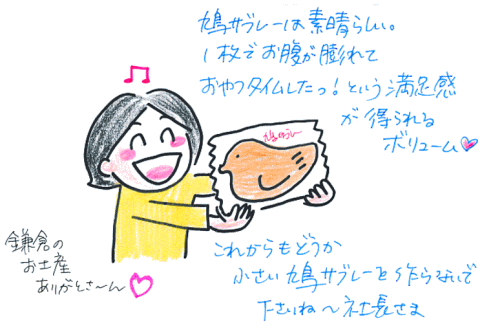 鳩サブレーは素晴らしい。
1枚でお腹が膨れて
おやつタイムしたっ!という満足感
が得られる
ボリューム
鳩サブレー
鎌倉の
お土産
ありがとさ〜ん
これからもどうか
小さい鳩サブレーを作らないで
下さいね〜社長さま